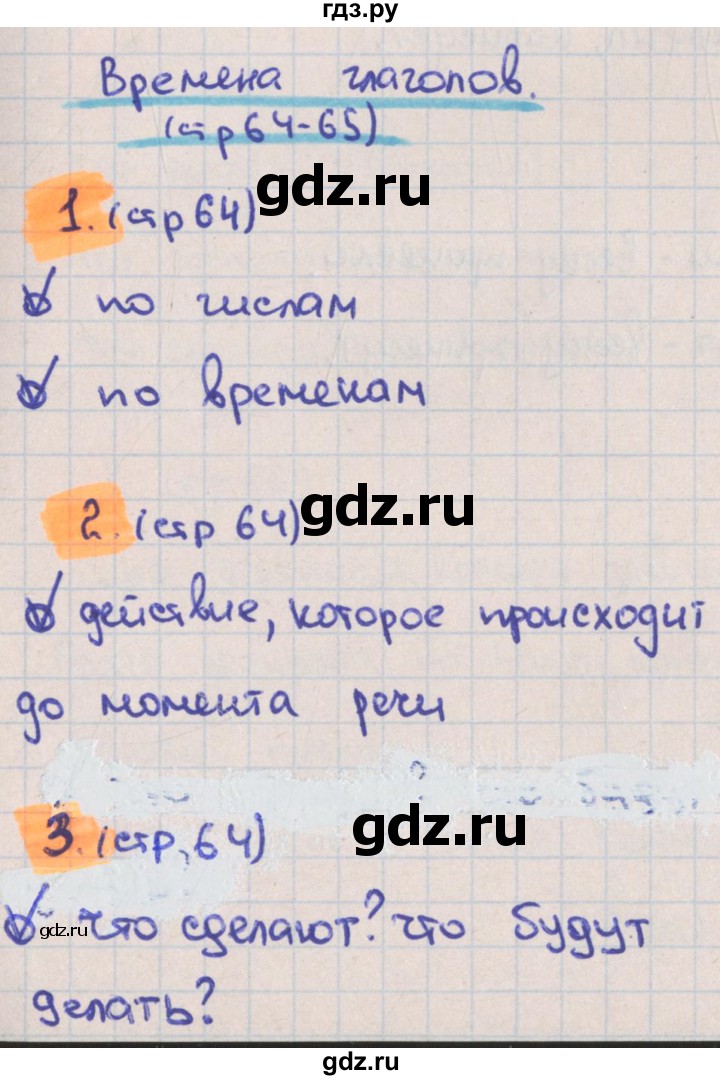 гдз.ру
Времена глаголов.
(стр 64-65)
gdz.ru
1. (стр 64)
по числам
по временам
gdz.ru
2. (стр 64)
действие, которое происходит
до момента речи
gdz.ru
3. (стр, 64)
gdz.ru
что сделают? что будут
делать?
gdz.ru